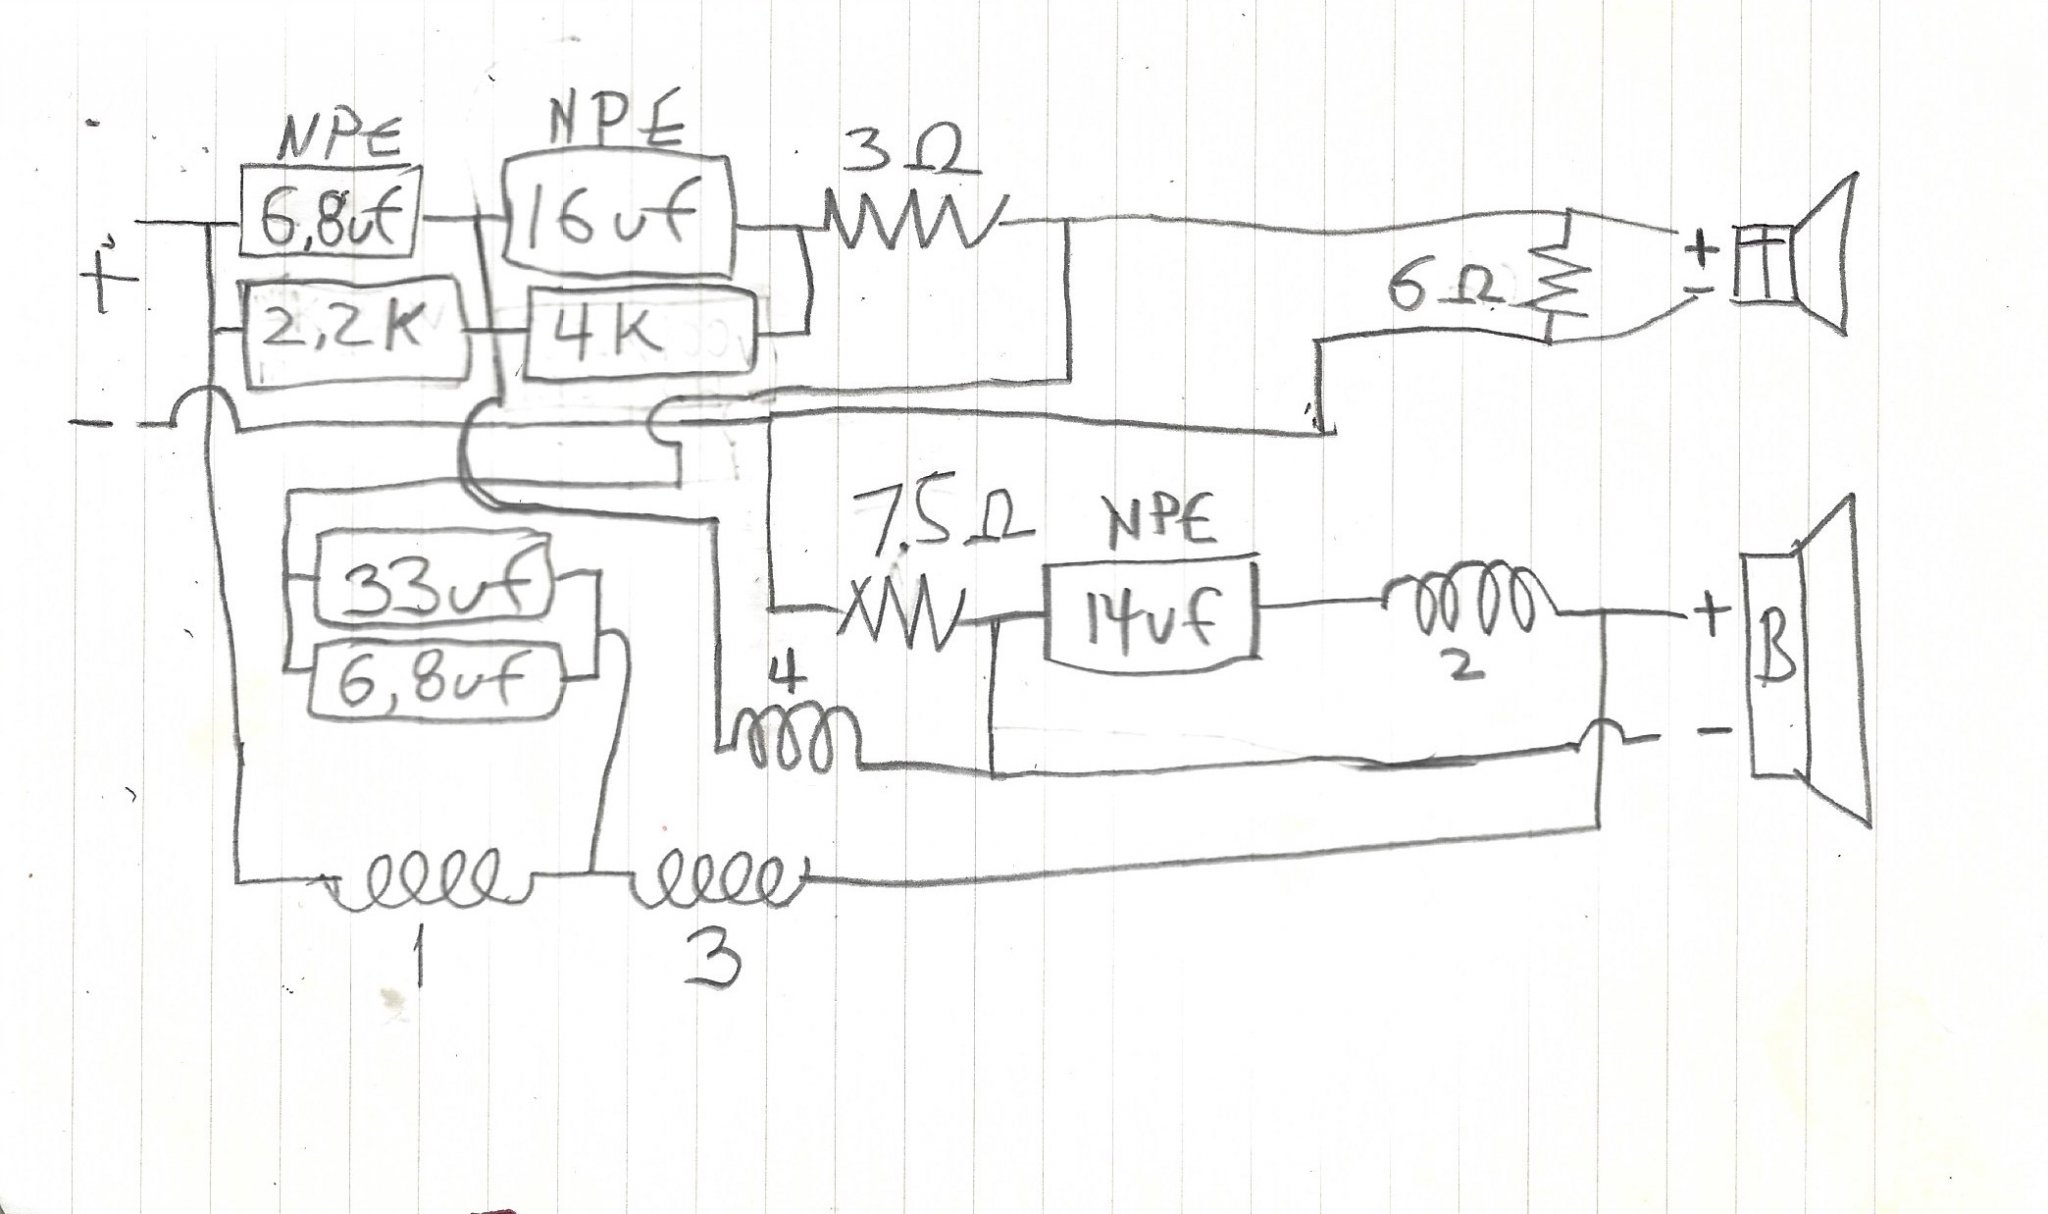 NPE NPE
6,8uf 16uf 3Ω
+ 2,2K 4K 6Ω + - T
-
7.5Ω NPE
33uf 14uf + B
6,8uf 4 2 -
1 3